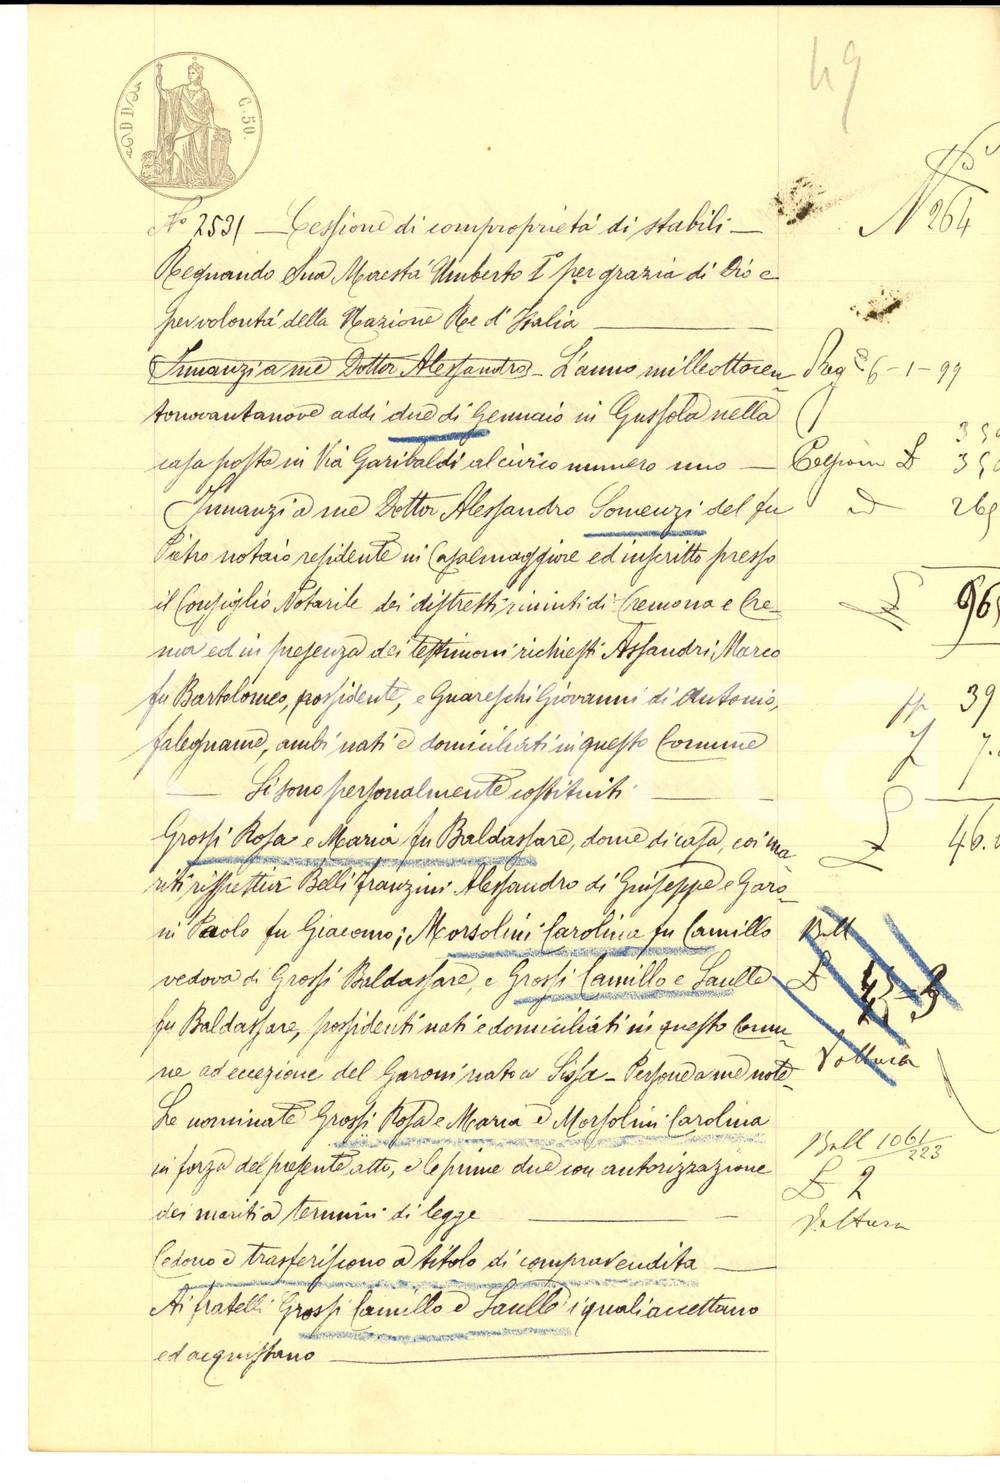 49
C. 50.
N° 264
N° 2531 — Cessione di comproprietá di stabili —
Regnando Sua Maestá Umberto I° per grazia di Dio e
per volontá della Nazione Re d'Italia
Innanzi a me Dottor Alessandro - L'anno milleottocen-
tonovantanove addi due di Gennaio in Gussola nella
casa posta in Via Garibaldi al civico numero uno —
Innanzi a me Dottor Alessandro Somenzi del fu
Pietro notaio residente in Casalmaggiore ed inscritto presso
il Consiglio Notarile dei distretti riuniti di Cremona e Cre-
ma ed in presenza dei testimoni richiesti Assandri Marco
fu Bartolomeo, possidente, e Guareschi Giovanni di Antonio,
falegname, ambi nati e domiciliati in questo Comune
— Si sono personalmente costituiti —
Grossi Rosa e Maria fu Baldassare, donne di casa, coi ma-
riti rispettivi Belli Franzini Alessandro di Giuseppe e Garo-
ni Paolo fu Giacomo; Morsolini Carolina fu Camillo
vedova di Grossi Baldassare, e Grossi Camillo e Saulle
fu Baldassare, possidenti nati e domiciliati in questo Comu-
ne ad eccezione del Garoni nato a Sissa - Persone a me note -
Le nominate Grossi Rosa e Maria e Morsolini Carolina
in forza del presente atto, e le prime due con autorizzazione
dei mariti a termini di legge —
Cedono e trasferiscono a titolo di compravendita —
Ai fratelli Grossi Camillo e Saulle i quali accettano
ed acquistano —
Reg° 6-1-99
350
Cessione £ 350
269
£ 965
39
£ 46.
Boll
£
Voltura
Boll 1061/223
£ 2
Voltura